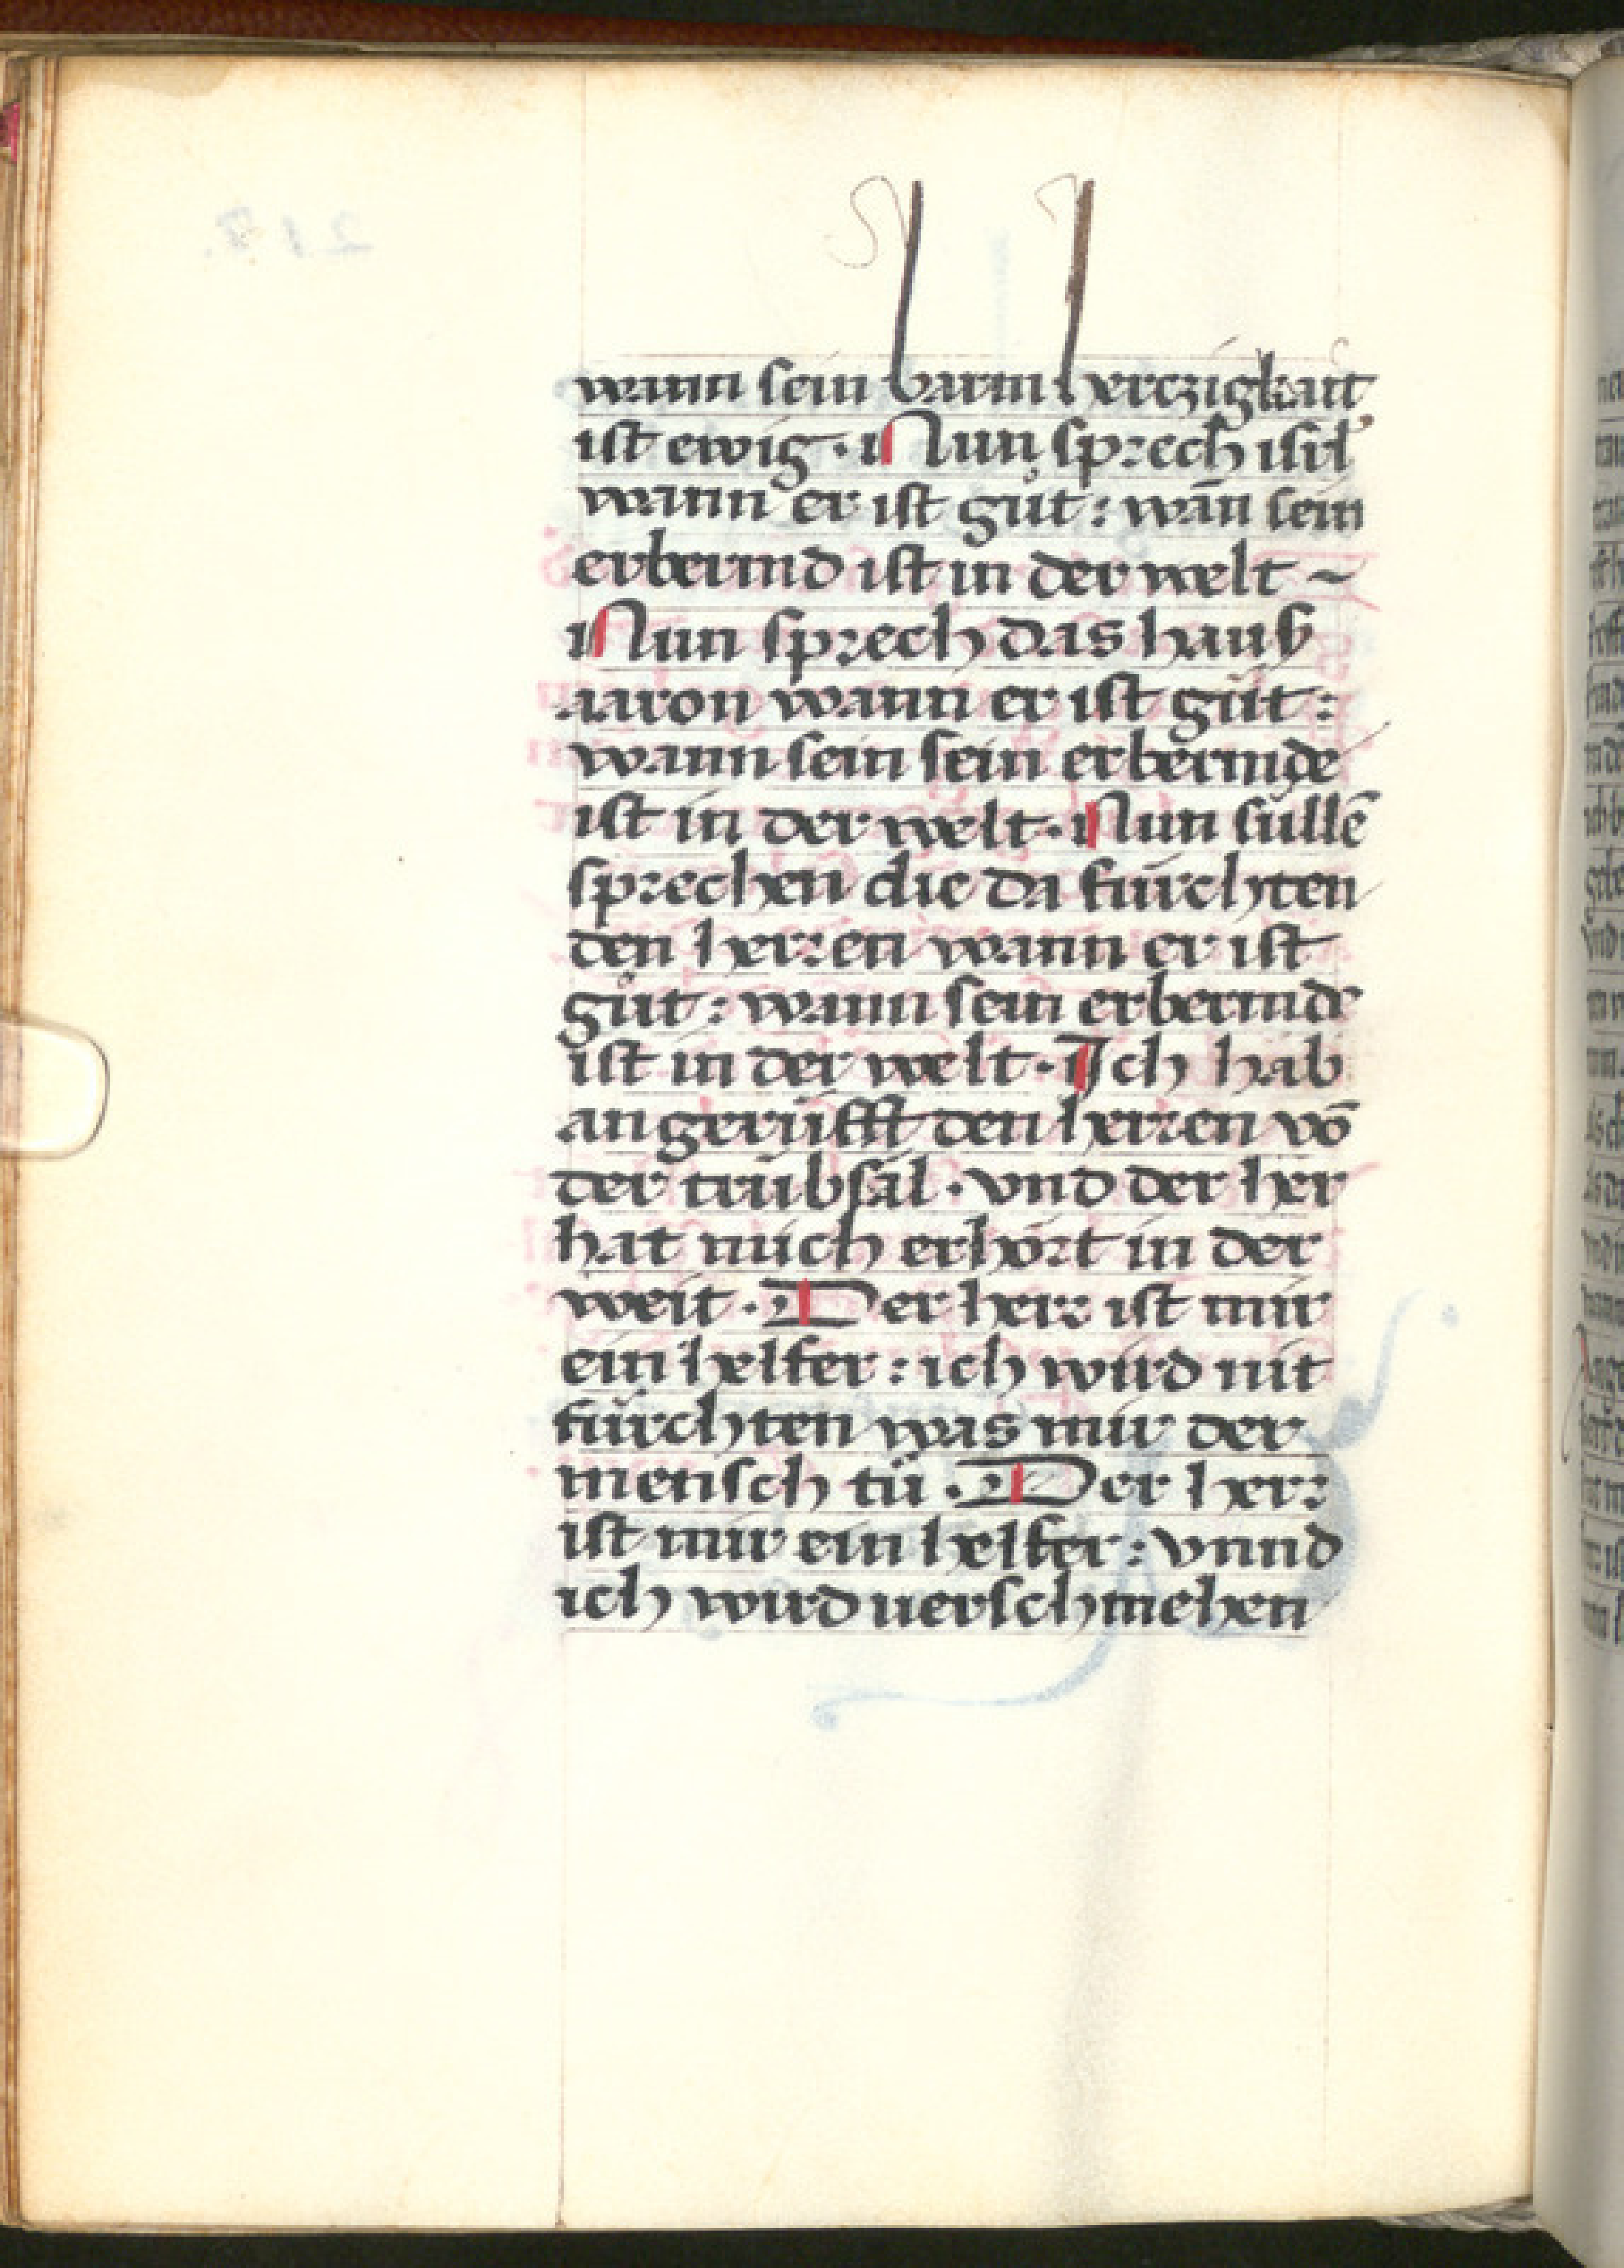 wann sein barmherczigkait
ist ewig · Nun sprech isrl̄
wann er ist gůt : wān sein
erbermd ist in der welt ~
Nun sprech das hauß
aaron wann er ist gůt :
wann sein sein erbermde
ist in der welt · Nun süllē
sprechen die da fürchten
den herren wann er ist
gůt : wann sein erbermde
ist in der welt · Ich hab
angerüfft den herren vō
der trübsal · vnd der her
hat mich erhört in der
weit · Der herr ist mir
ein helfer : ich wird nit
fürchten was mir der
mensch tü · Der herr
ist mir ein helfer : vnnd
ich wird uerschmehen